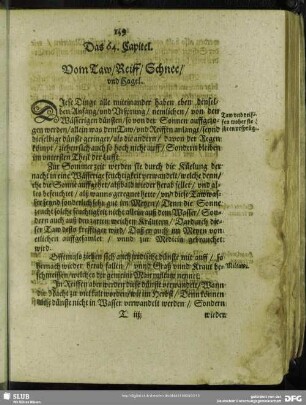 149
Das 64. Capitel.
Vom Taw / Reiff / Schnee /
vnd Hagel.
Diese Dinge alle miteinander haben eben densel-
ben Anfang / vnd Vrsprung / nemlichen / von den
Wässerigen dünsten / so von der Sonnen auffgezo-
gen werden / allein was dem Taw / vnd Reiffen anlangt / seynd
dieselbige dünste geringer / als die andern / davon der Regen
kömpt / ziehen sich auch so hoch nicht auff / Sondern bleiben
im vntersten Theil der Lufft.
Zur Sommer zeit werden sie durch die Kühlung der
nacht in eine Wässerige feuchtigkeit verwandelt / welche denn /
ehe die Sonne auffgehet / als bald wieder herab fellet / vnd al-
les befeuchtet / als wanns geregnet hette / vnd diese Tawwas-
ser seynd sonderlich sehr gut im Meyen / Denn die Sonne
zeucht solche feuchtigkeit nicht allein aus dem Wasser / Son-
dern auch aus den jungen weichen Kräutern / Dardurch die-
ser Taw desto krefftiger wird / Daher auch im Meyen
entlichen auffgesamlet / vnnd zur Medicin gebrauchet
wird.
Offtmals ziehen sich auch
hernach wieder herab fallen / vnnd Graß vnnd Kraut be-
schmeissen / welches denn
In Reiffen aber werden diese dünste verwandelt / Wann
die Nacht zu viel kalt werden / wie im Herbst / Denn können
diese dünste nicht in Wasser verwandelt werden / Sondern
T iij wieder
Miltaw.
SLUB
DFG